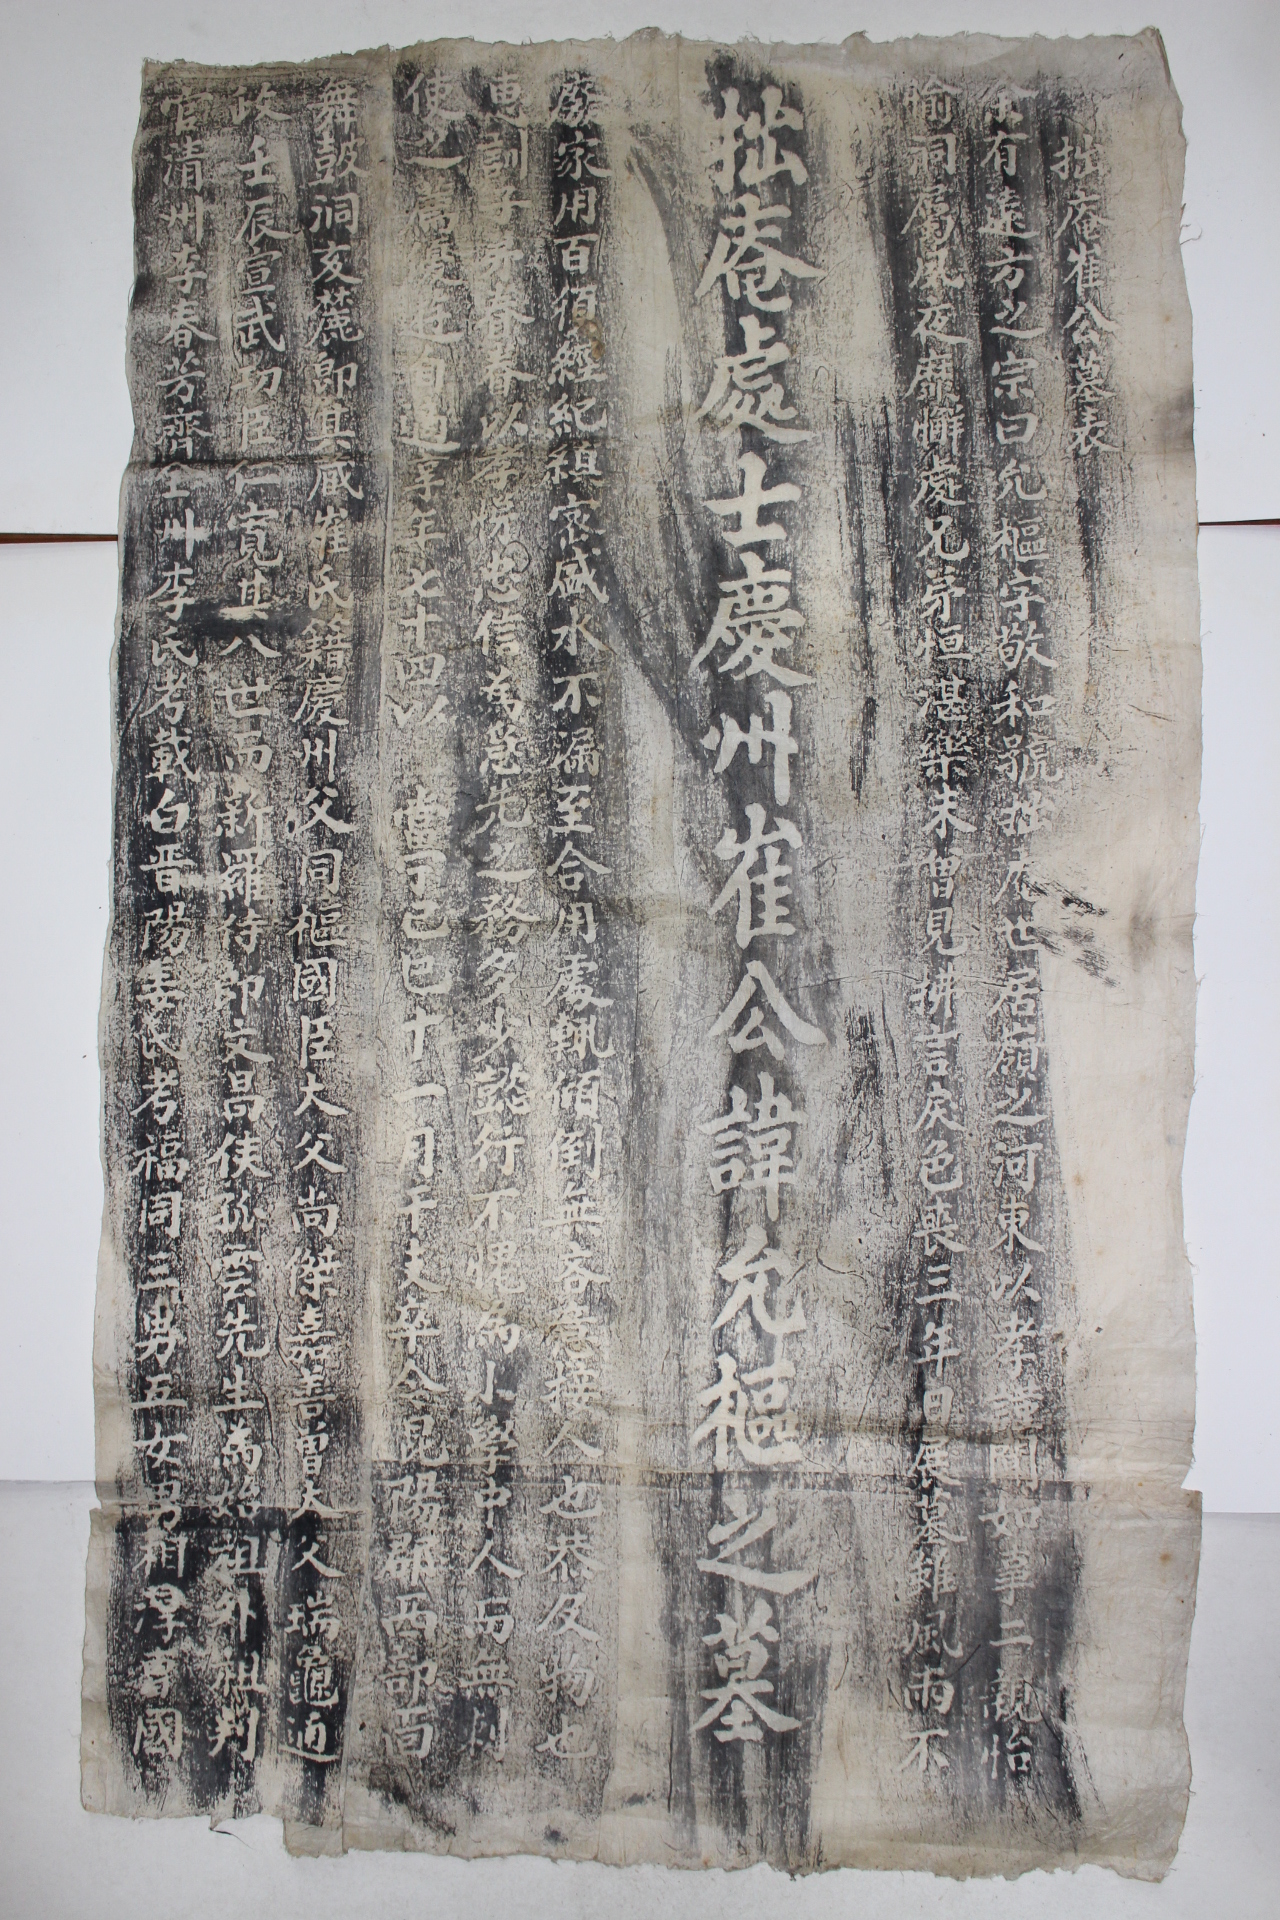 拙庵崔公墓表
余有遠方之宗曰允樞字敬和號拙庵世居嶺之河東以孝謹聞如事二親怡
愉祠屬夙夜靡懈處兄弟恒湛樂未曾見拂言戾色喪三年日展墓雖風雨不
拙庵處士慶州崔公諱允樞之墓
廢家用百須經紀縝密盛水不漏至合用處輒傾倒無吝意接人也恭及物也
惠訓子弟眷眷以孝悌忠信為急先之務多少懿行不愧為小學中人而無
使之薦 自適享年七十四以 當宁己巳十一月 卒今昆陽郡西部面
舞鼓洞亥麓卽其藏崔氏籍慶州父同樞國臣大父尚傑嘉善曾大父瑞龜通
政壬辰宣武功臣仁寬其八世而新羅侍郎文昌侯孤雲先生為始祖外祖判
官清州李春芳齊全州李氏考載白晋陽姜氏考福同三男五女男相厚 國